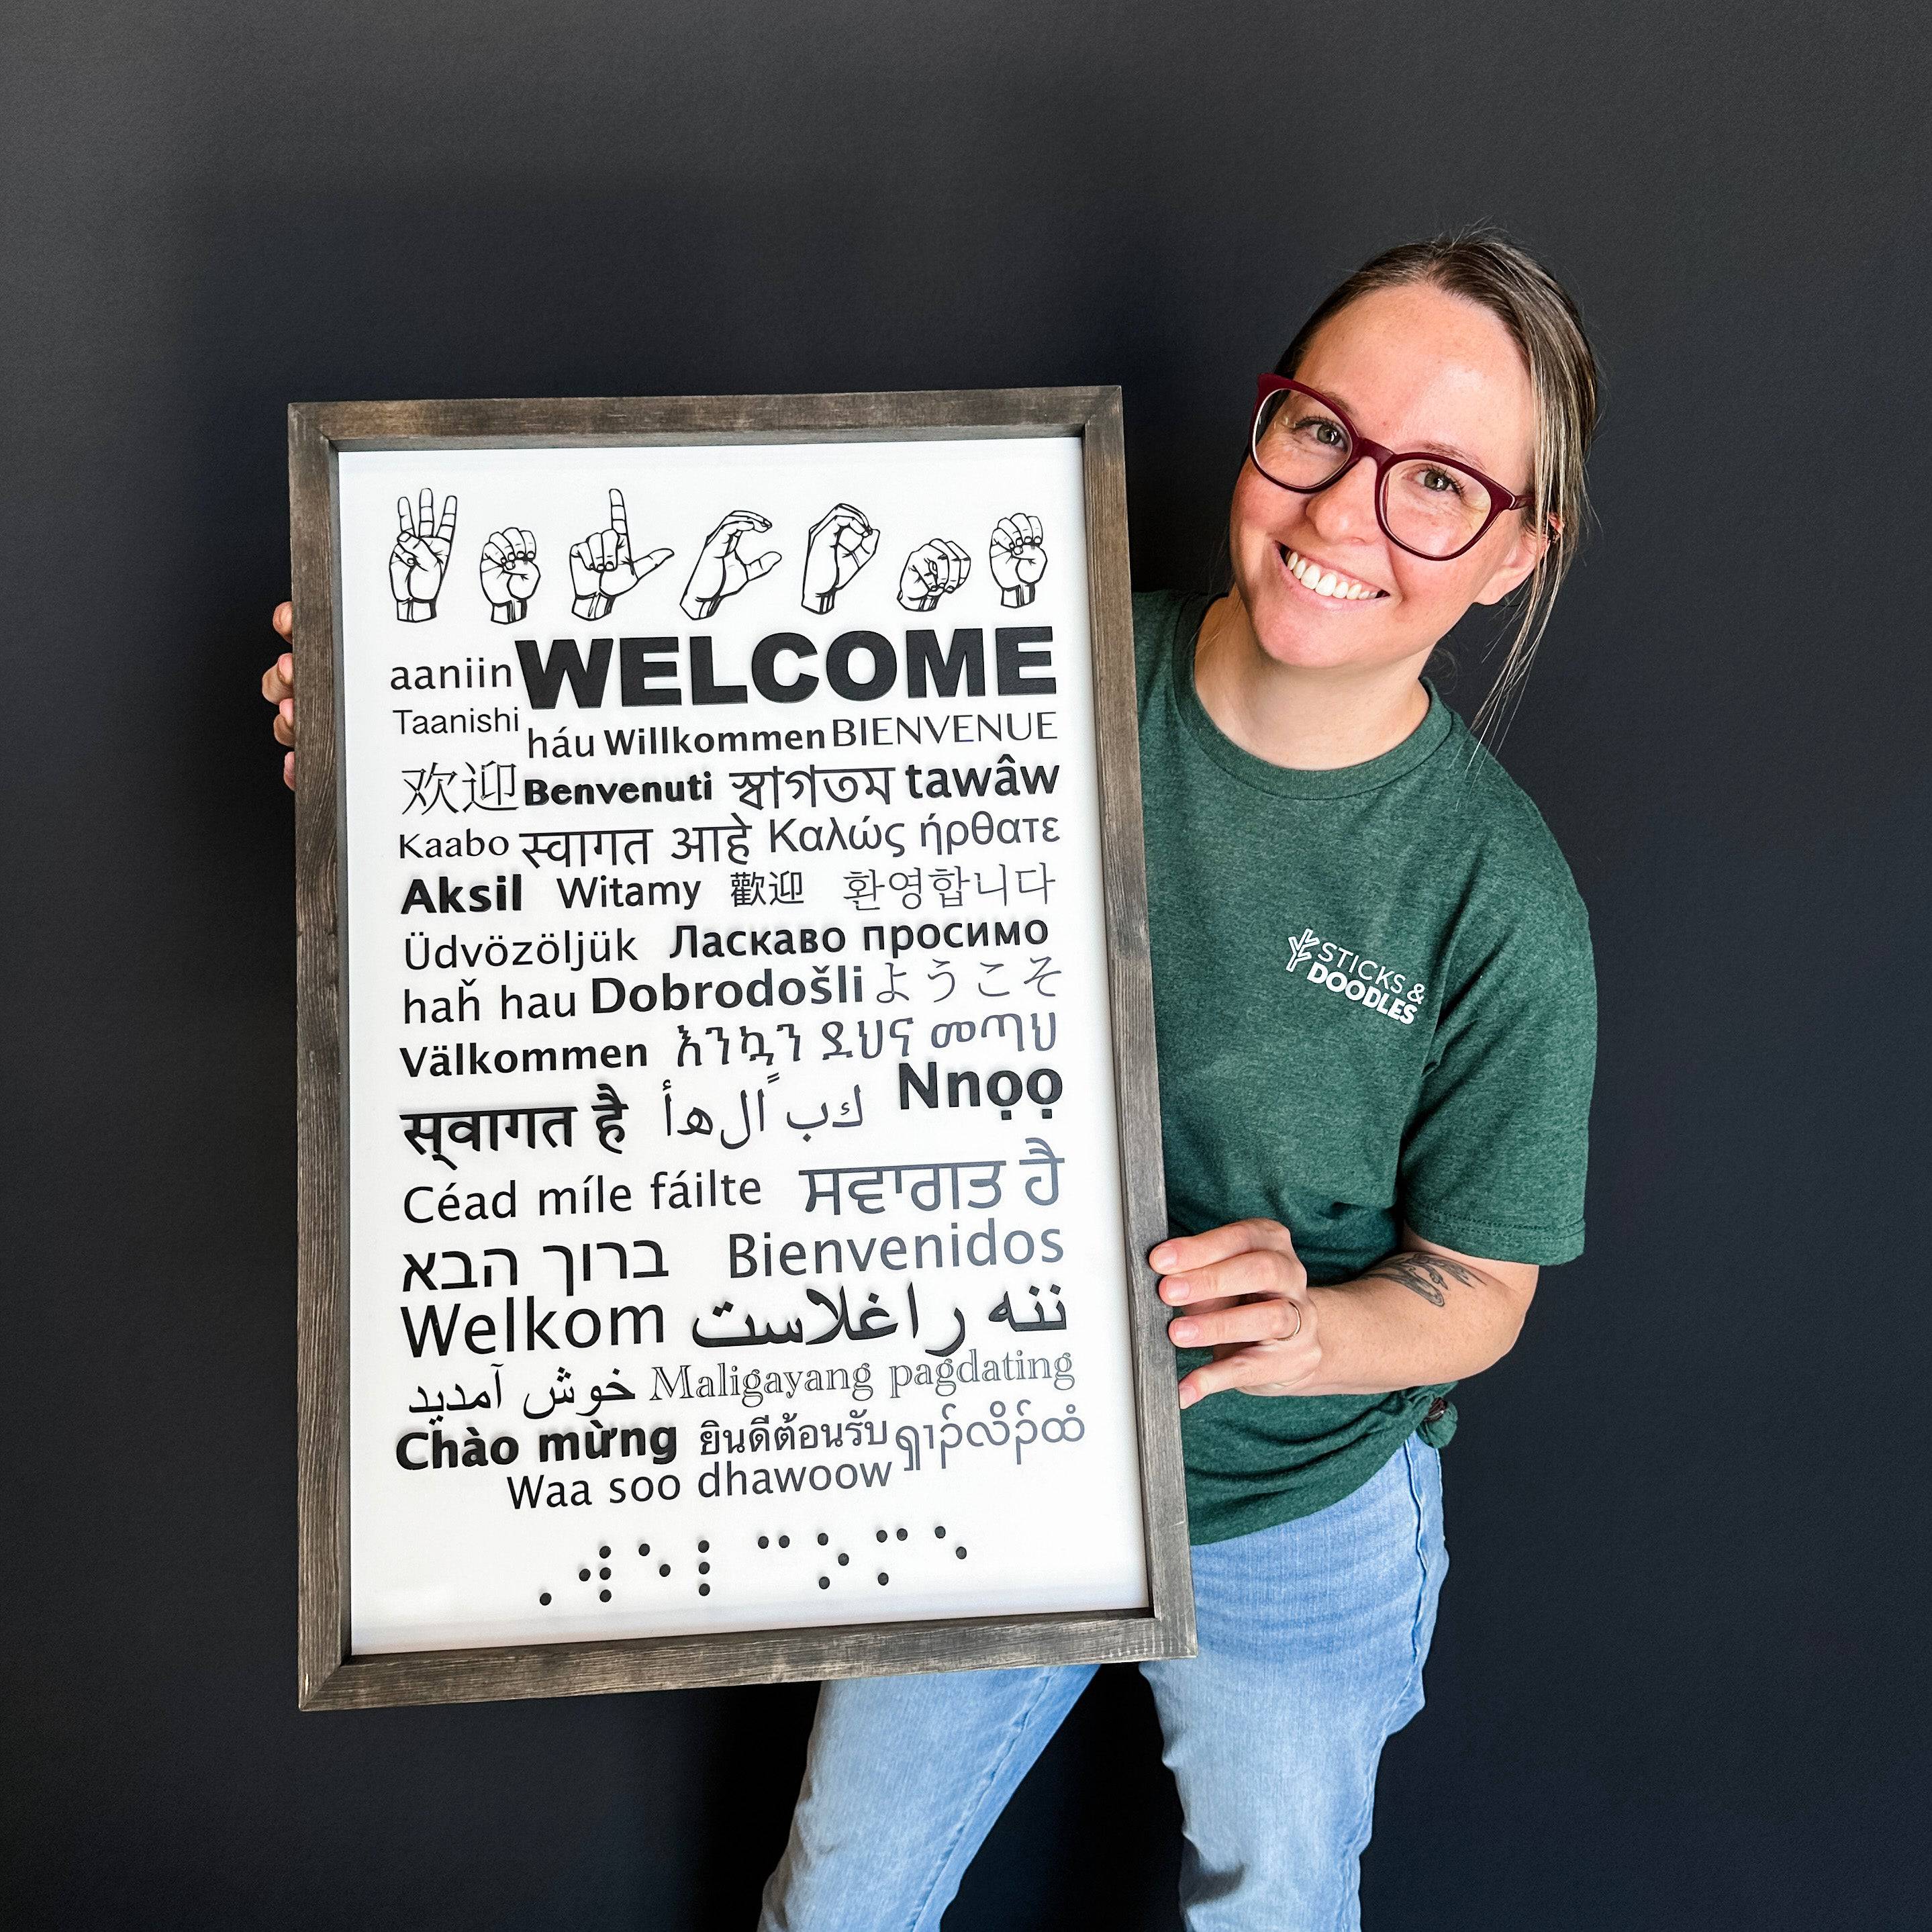 aaniin WELCOME
Taanishi háu Willkommen BIENVENUE
欢迎 Benvenuti স্বাগতম tawâw
Kaabo स्वागत आहे Καλώς ήρθατε
Aksil Witamy 歡迎 환영합니다
Üdvözöljük Ласкаво просимо
haȟ hau Dobrodošli ようこそ
Välkommen እንኳን ደህና መጣህ
स्‌वागत है كب ًال هأ Nnọọ
Céad míle fáilte ਸਵਾਗਤ ਹੈ
ברוך הבא Bienvenidos
Welkom ننه راغلاست
خوش آمدید Maligayang pagdating
Chào mừng ยินดีต้อนรับ
Waa soo dhawoow
⠠⠺⠑⠇⠉⠕⠍⠑
STICKS &
DOODLES